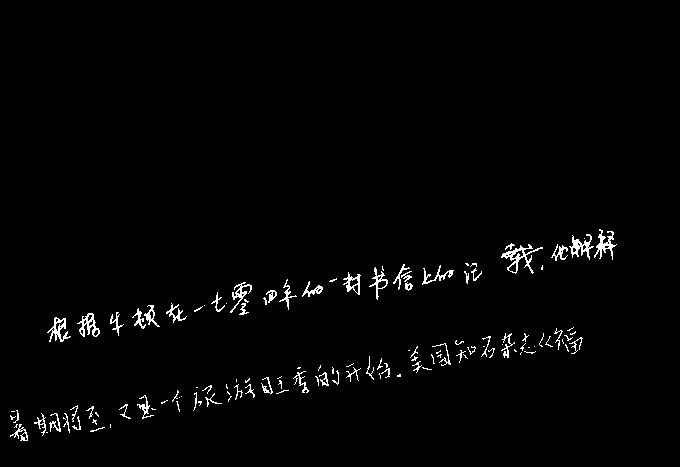 根据牛顿在一七零四年的一封书信上的记载，他解释
暑期将至，又是一个旅游旺季的开始。美国知名杂志《福